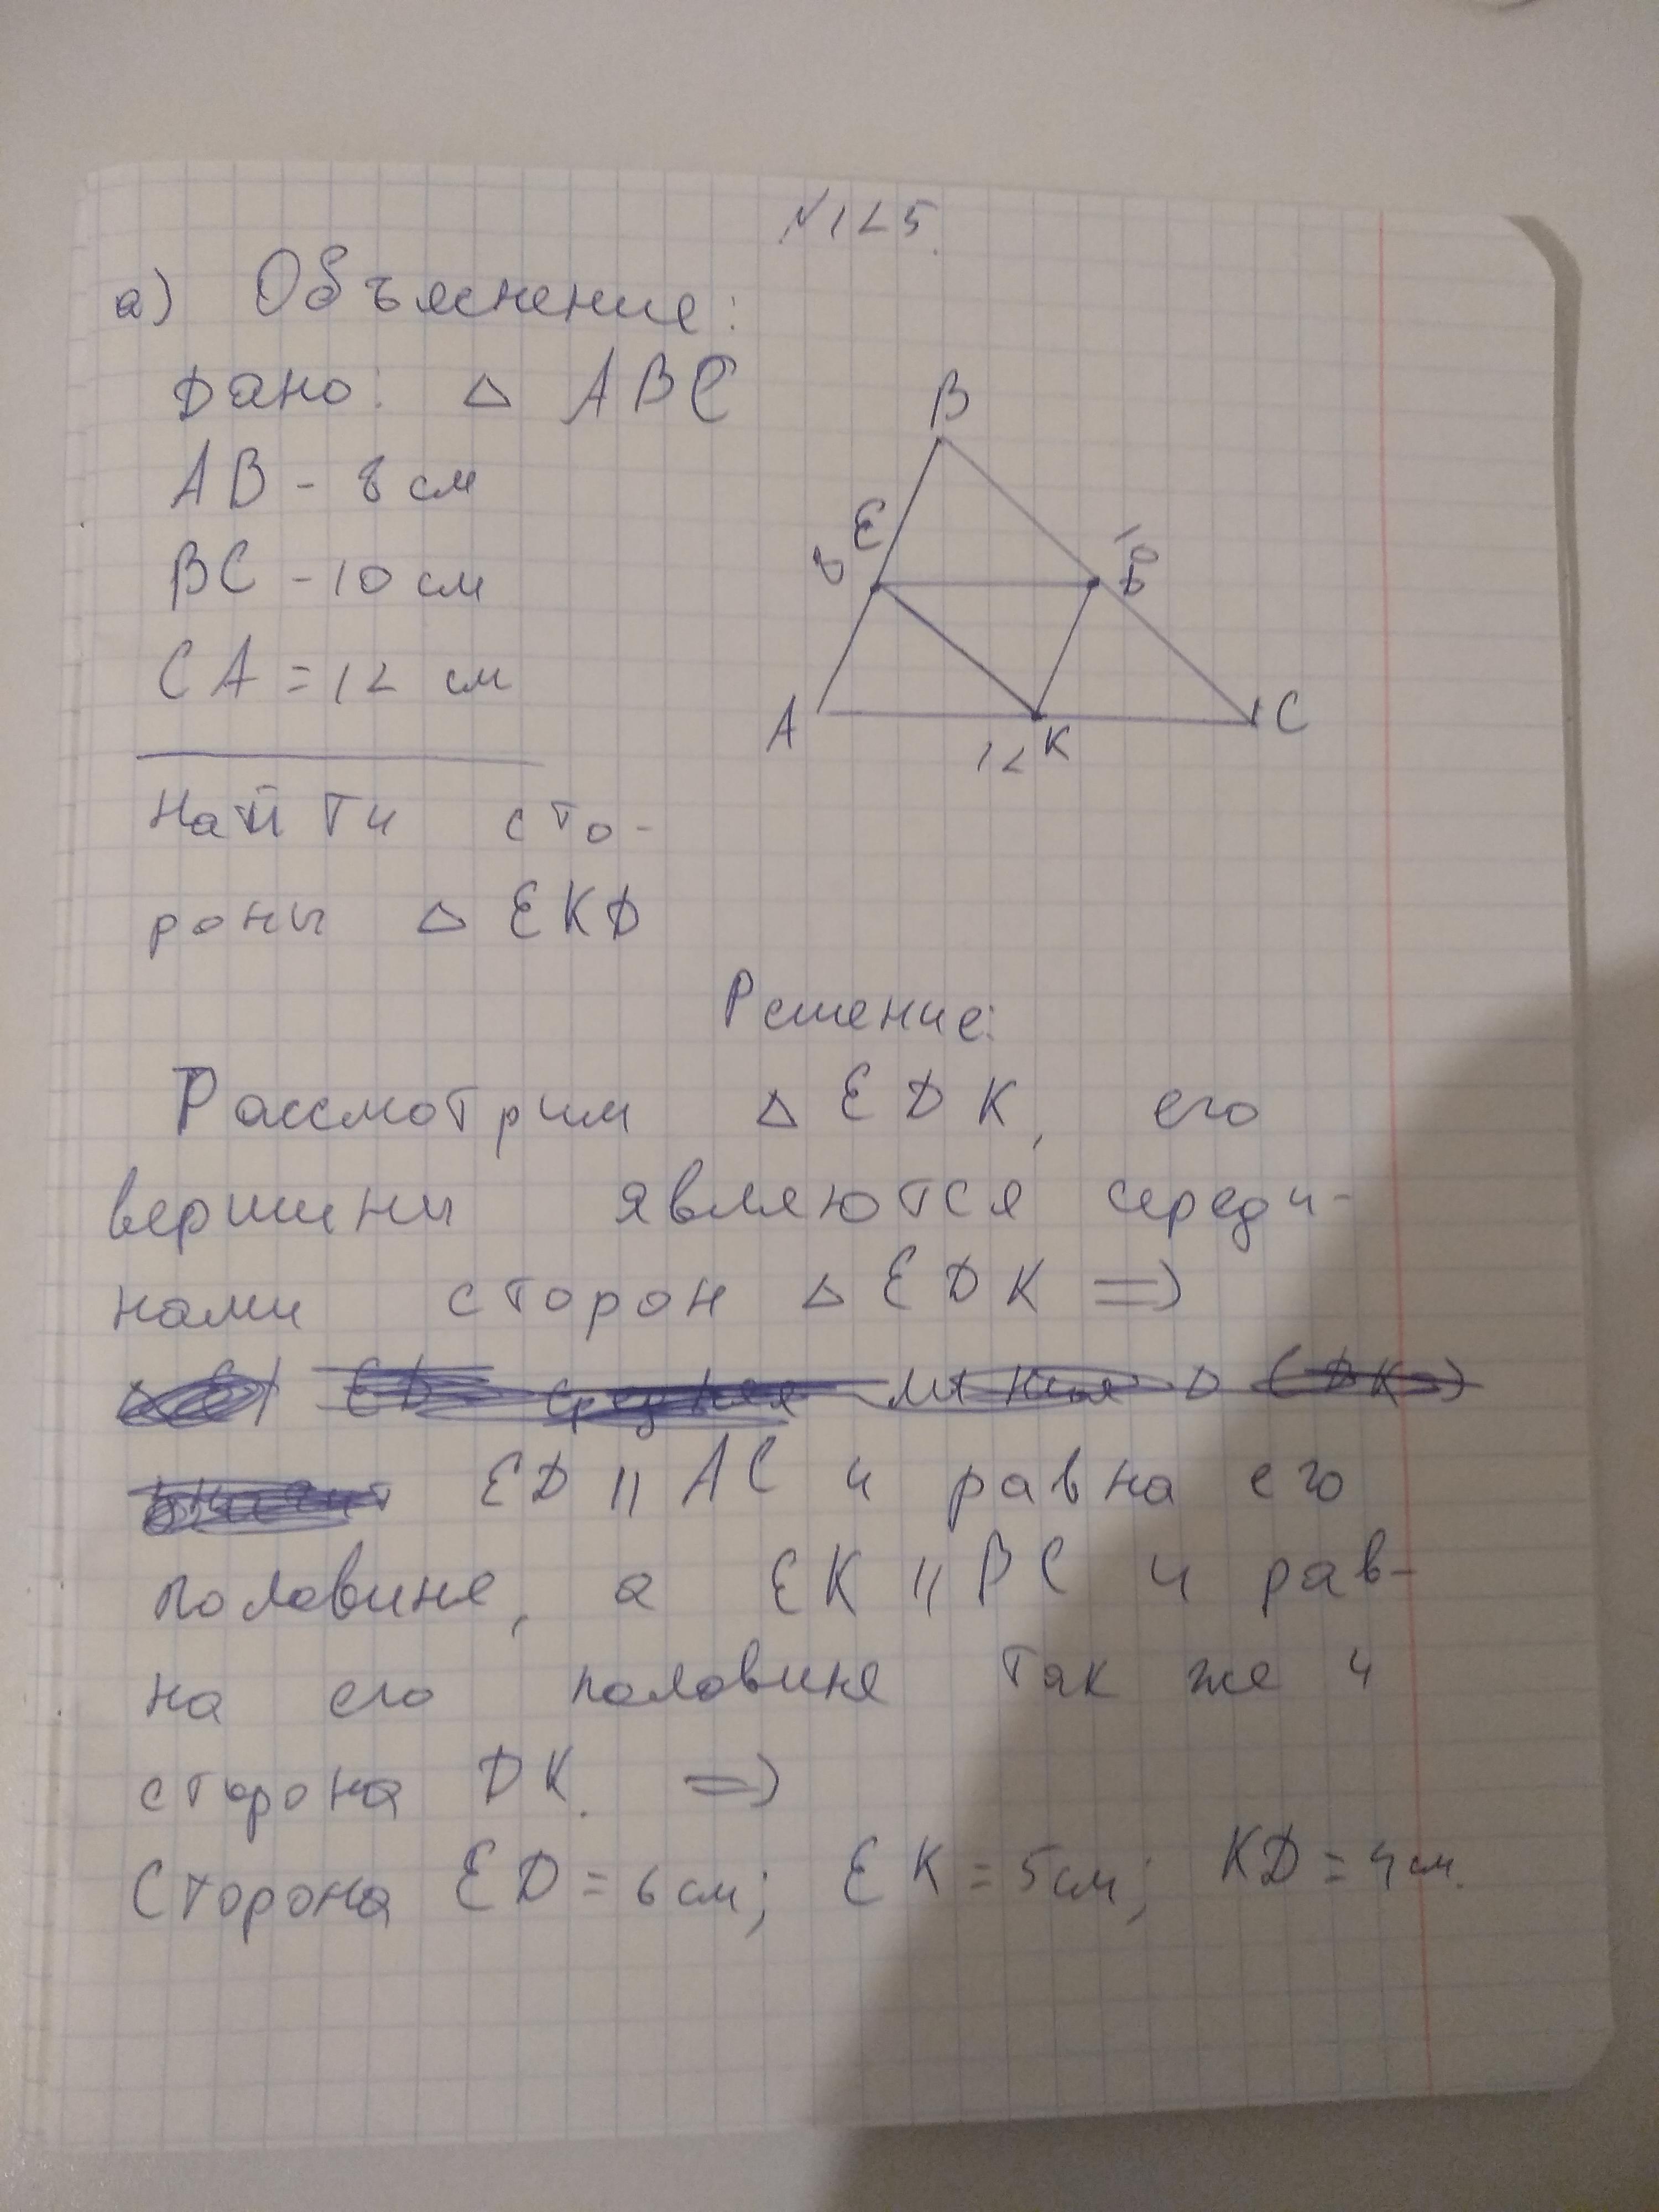 №125.
а) Объяснение:
Дано: △ ABC
AB - 8 см
BC - 10 см
CA = 12 см
B
E
8
10
D
A
12
K
C
Найти сто-
роны △ EKD
Решение:
Рассмотрим △ EDK, его
вершины являются середи-
нами сторон △ EDK =>
ED || AC и равна его
половине, а EK || BC и рав-
на его половине так же и
сторона DK. =>
Сторона ED = 6 см; EK = 5 см; KD = 4 см.